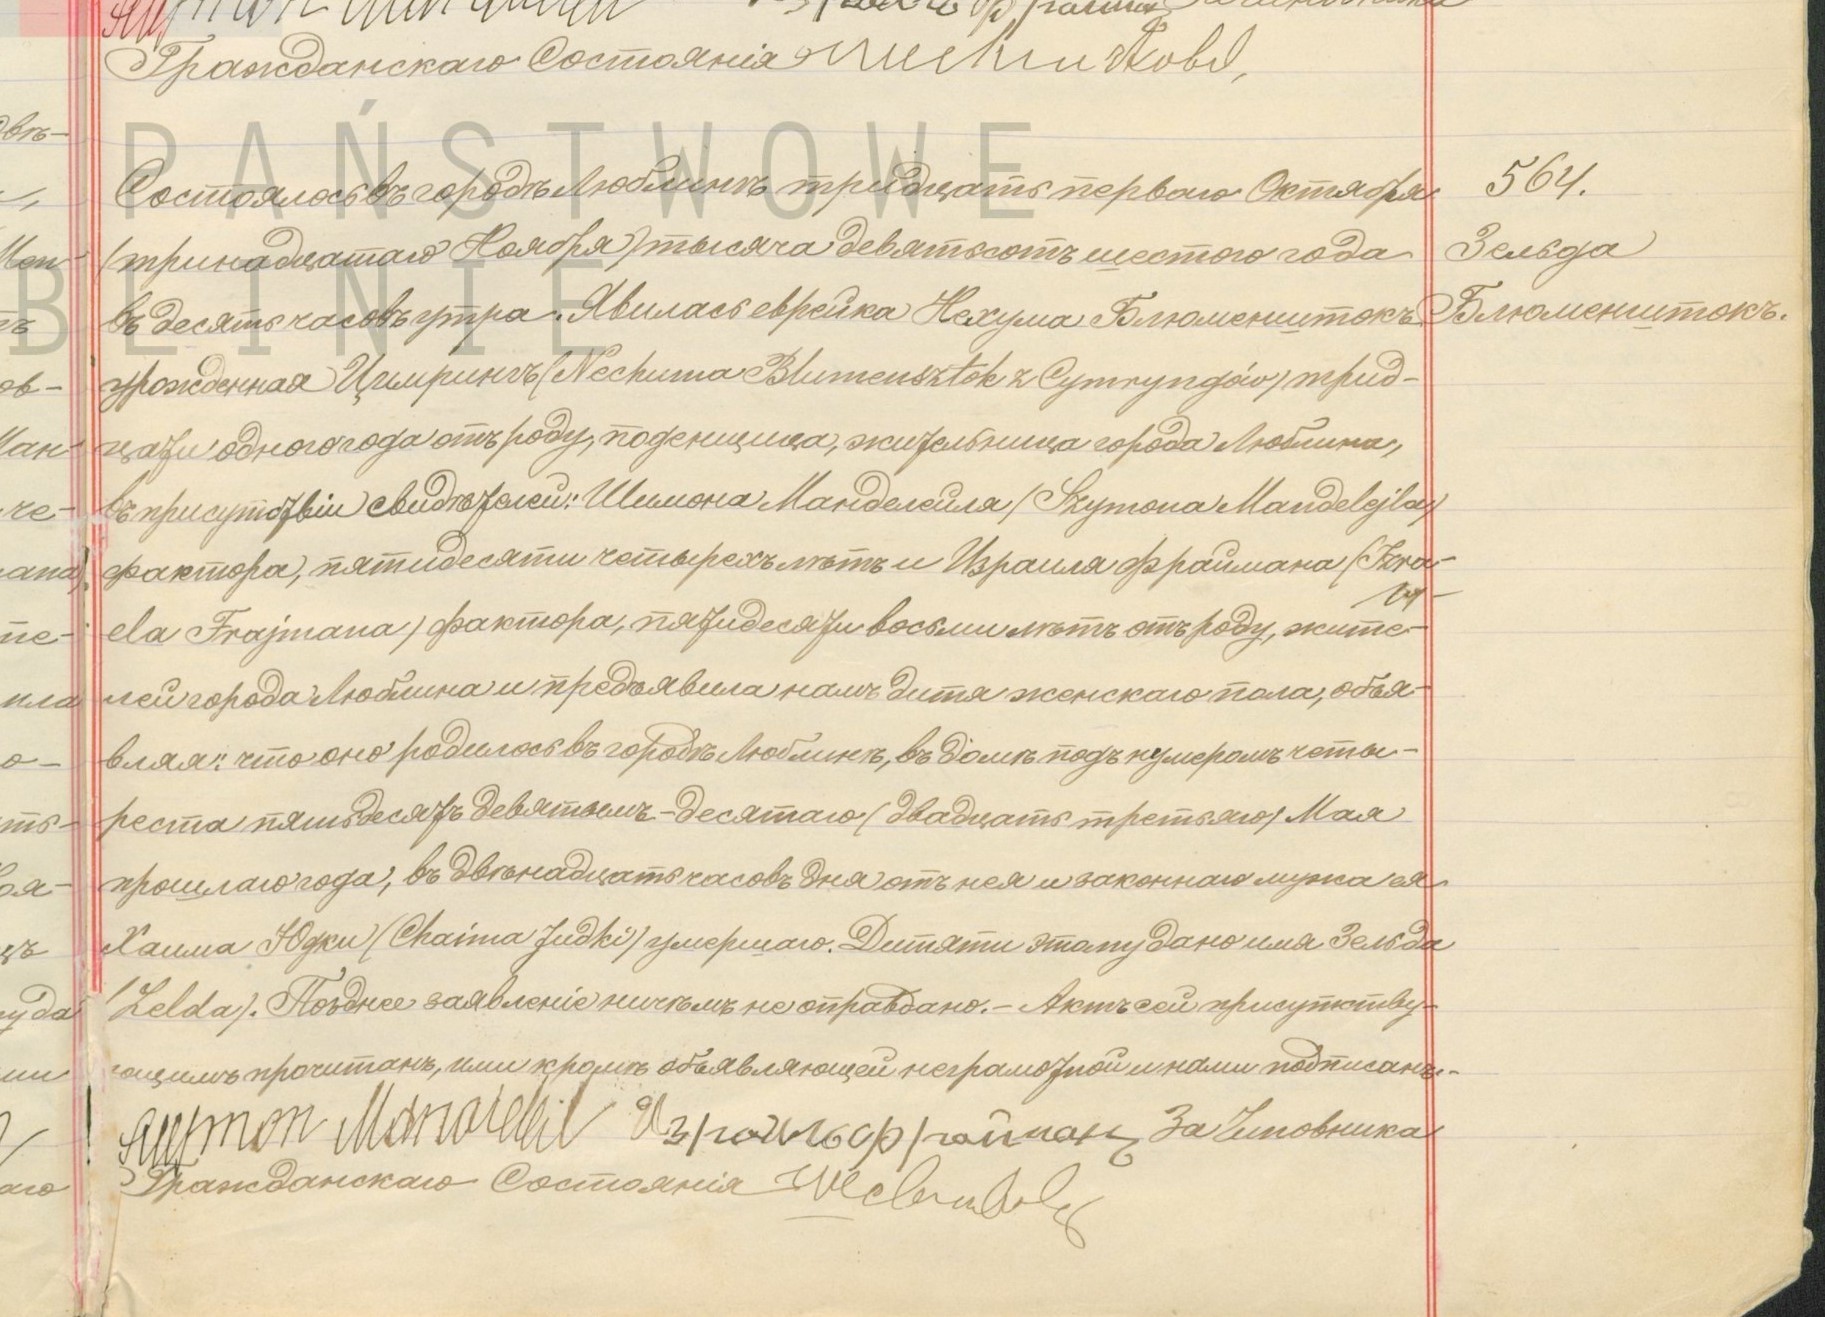 Гражданскаго Состоянія
PAŃSTWOWE
BLINIE
Состоялось въ городѣ Люблинѣ тридцать перваго Октября
564.
(тринадцатаго Ноября) тысяча девятьсотъ шестого года
Зельда
въ десять часовъ утра. Явилась еврейка Нехума Блюменштокъ
Блюменштокъ.
урожденная Цимрингъ (Nechuma Blumensztok z Cymryngów) трид-
цати одного года отъ роду, поденщица, жительница города Люблина,
въ присутствіи свидѣтелей: Шимона Манделейля (Szymona Mandelejla)
фактора, пятидесяти четырехъ лѣтъ и Израиля Фраймана (Izra-
ela Frajmana) фактора, пятидесяти восьми лѣтъ отъ роду, жите-
лей города Люблина и предъявила намъ дитя женскаго пола, объя-
вляя: что оно родилось въ городѣ Люблинѣ, въ домѣ подъ нумеромъ четы-
реста пятьдесятъ девятымъ - десятаго (двадцать третьяго) Мая
прошлаго года, въ двѣнадцать часовъ дня отъ нея и законнаго мужа ея
Хаима Юдки (Chaima Judki) умершаго. Дитяти этому дано имя Зельда
(Zelda). Позднее заявленіе ничѣмъ не оправдано. - Актъ сей присутству-
ющимъ прочитанъ, ими кромѣ объявляющей неграмотной и нами подписанъ. -
Израиль Фрайман За Чиновника
Гражданскаго Состоянія